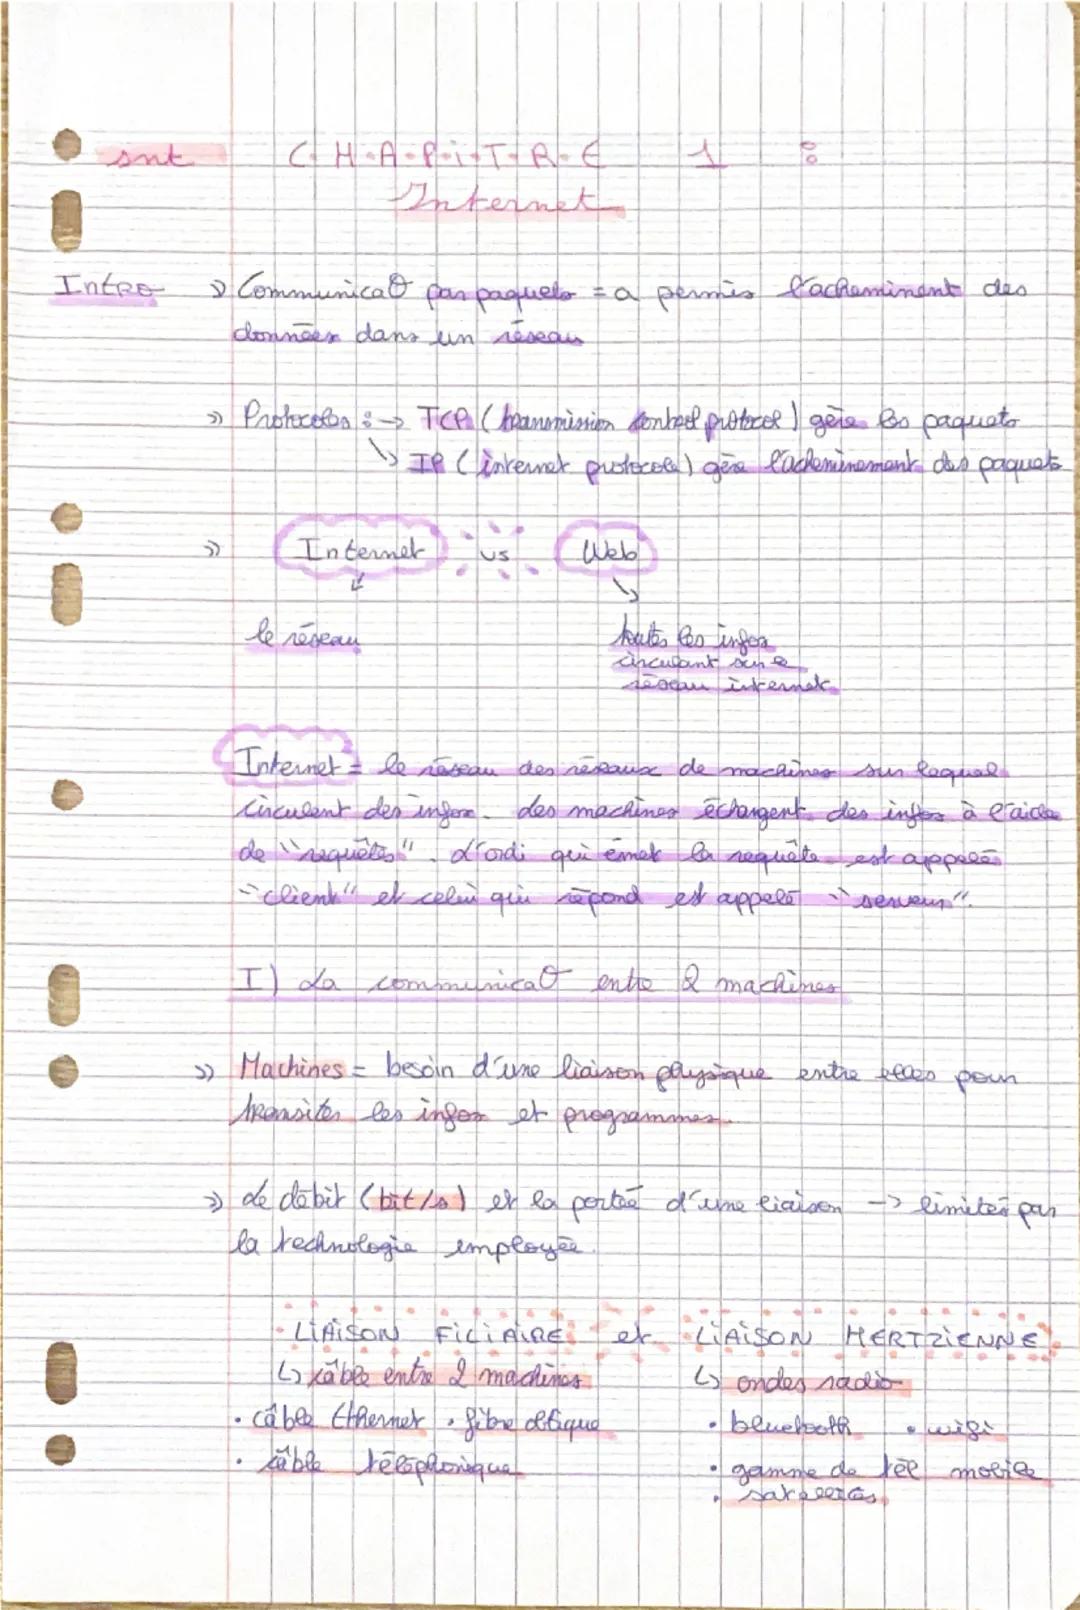 snt C-H-A-P-i-T-R-E 1 :
Internet
Intro » CommunicaO par paquets = a permis l'acheminent des
données dans un réseau
» Protocoles : -> TCP (transmission control protocol) gère les paquets
↳ IP (internet protocole) gère l'acheminement des paquets
» Internet vs Web
le réseau toutes les infos
circulant sur le
réseau internet.
Internet = le réseau des réseaux de machines sur lequel
circulent des infos. des machines échangent des infos à l'aide
de "requêtes". L'ordi qui émet la requête est appelé
"client" et celui qui répond est appelé "serveur".
I) La communicaO entre 2 machines
» Machines = besoin d'une liaison physique entre elles pour
transiter les infos et programmes.
» Le débit (bit/s) et la portée d'une liaison -> limités par
la technologie employée.
LiAiSON FiLiAiRE et LiAiSON HERTZiENNE
↳ câble entre 2 machines ↳ ondes radio
• câble Ethernet • fibre obtique • bluetooth • wifi
• câble téléphonique • gamme de tél mobile
• satellites